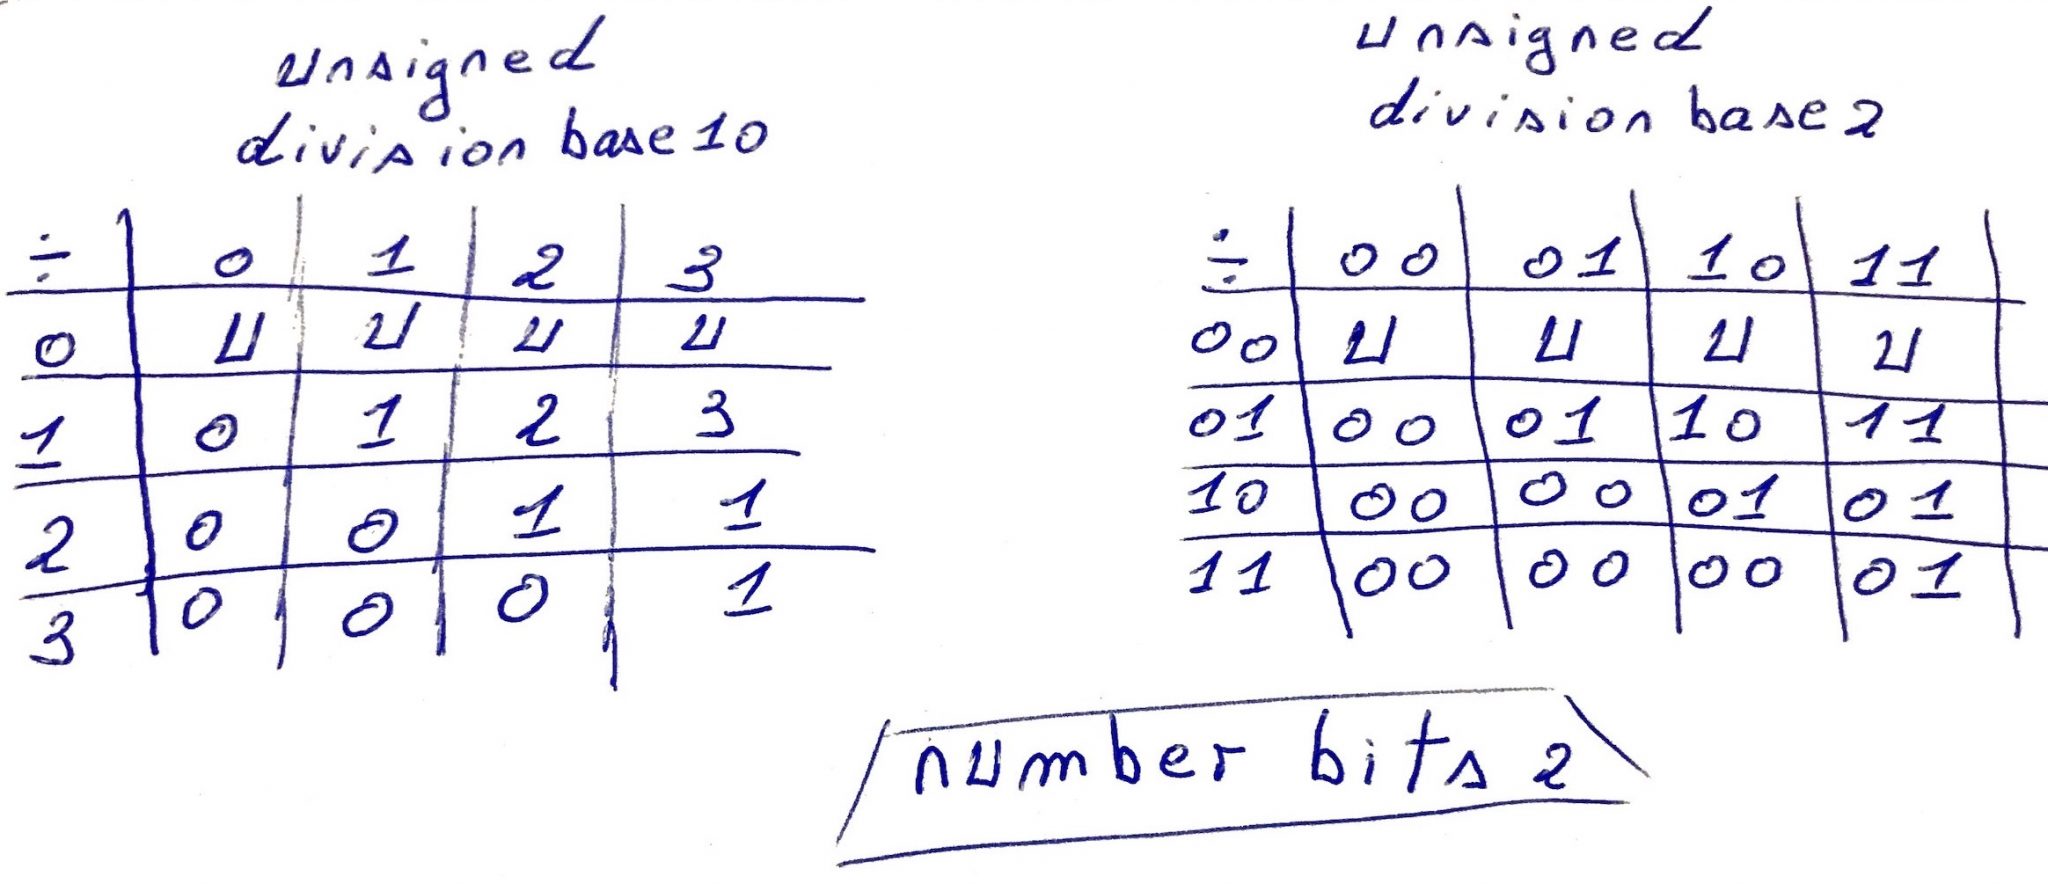 unsigned
division base 10
÷ 0 1 2 3
0 U U U U
1 0 1 2 3
2 0 0 1 1
3 0 0 0 1
unsigned
division base 2
÷ 00 01 10 11
00 U U U U
01 00 01 10 11
10 00 00 01 01
11 00 00 00 01
number bits 2